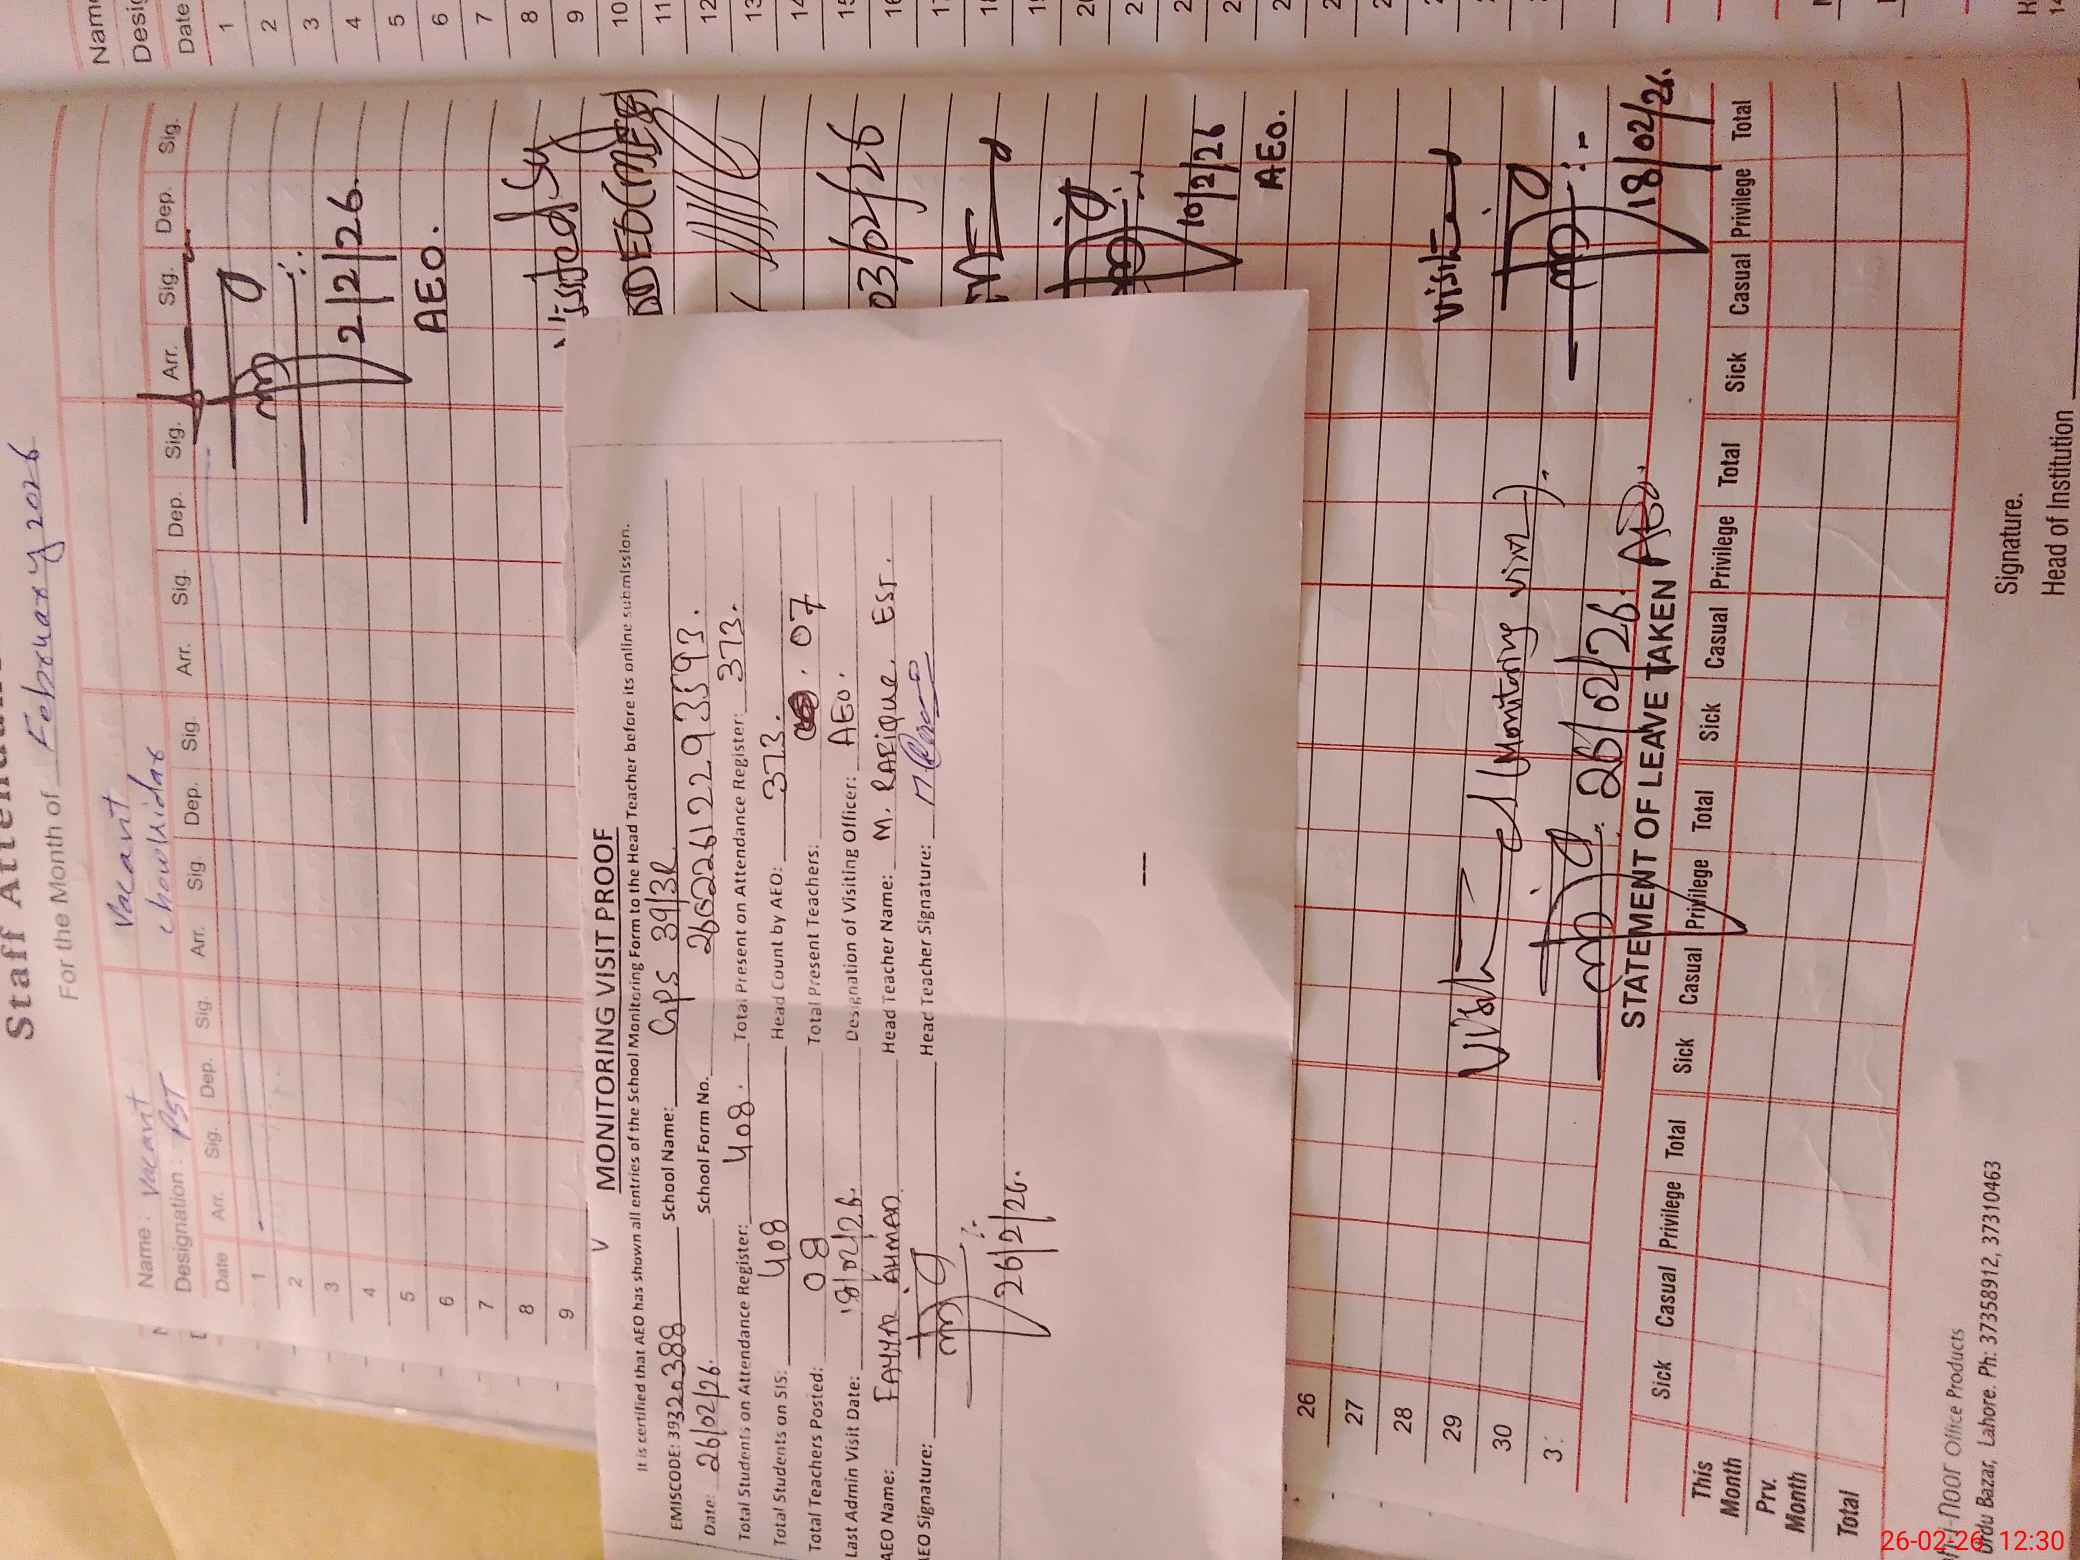 Staff Attendan
For the Month of February 2026
Name : Vacant
Designation : PST
Vacant
chowkidar
Date Arr. Sig. Dep. Sig. Arr. Sig Dep. Sig Arr. Sig. Dep. Sig. Arr. Sig. Dep. Sig.
1
2
3
4
5
6
7
8
9
2/2/26.
AEO.
Visited by
DDEO(MEE)
03/02/26
10/2/26
AEO.
MONITORING VISIT PROOF
It is certified that AEO has shown all entries of the School Monitoring Form to the Head Teacher before its online submission.
EMISCODE: 39320388 School Name: GPS 39/3R
Date: 26/02/26. School Form No.
Total Students on Attendance Register: 408. Total Present on Attendance Register: 373.
Total Students on SIS: 408 Head Count by AEO: 373.
Total Teachers Posted: 08 Total Present Teachers: 07
Last Admin Visit Date: 18/02/26. Designation of Visiting Officer: AEO.
AEO Name: FAYYAZ AHMED Head Teacher Name: M. RAFIQUE, EST.
AEO Signature: Head Teacher Signature:
26/2/26.
26
27
28
29
30
3
Visit
18/02/26.
Visit (Monitoring visit).
26/02/26. AEO.
STATEMENT OF LEAVE TAKEN
Sick Casual Privilege Total Sick Casual Privilege Total Sick Casual Privilege Total Sick Casual Privilege Total
This Month
Prv. Month
Total
Noor Office Products
Urdu Bazar, Lahore. Ph: 37358912, 37310463
Signature.
Head of Institution
Name
Desig
Date
1
2
3
4
5
6
7
8
9
10
11
12
13
14
15
16
26-02-26, 12:30